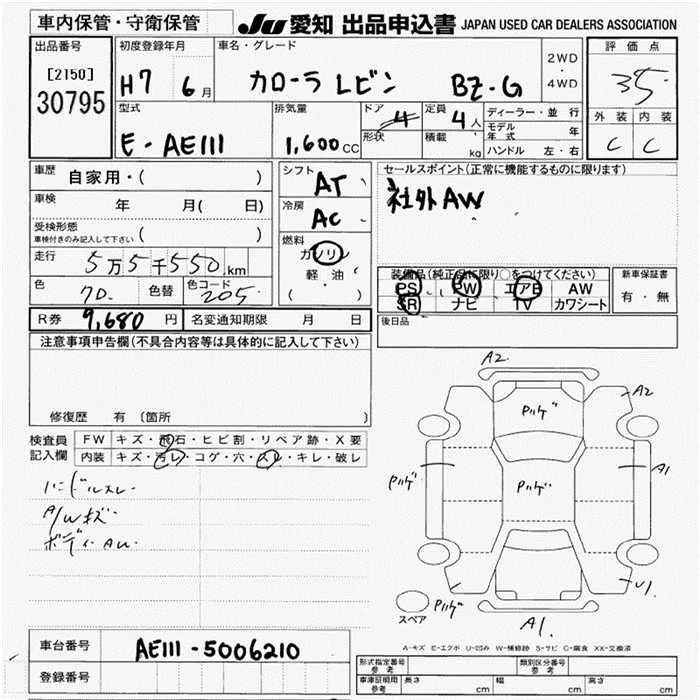 車内保管・守衛保管
JU 愛知 出品申込書 JAPAN USED CAR DEALERS ASSOCIATION
出品番号 初度登録年月 車名・グレード 2WD・4WD 評価点
[2150] 30795 H7 6月 カローラ レビン BZ-G 35
型式 排気量 ドア 定員 ディーラー・並行 外装 内装
E-AE111 1,600cc 4 4人 モデル年式 年 C C
形状 積載 kg ハンドル 左・右
車歴 自家用・( ) シフト AT セールスポイント(正常に機能するものに限ります)
車検 年 月( 日) 冷房 AC 社外AW
受検形態 車検付きのみ記入して下さい ( ) 燃料 ガソリン
走行 5万5千550km 軽・油 ( )
装備品(純正品に限り○をつけてください) 新車保証書
色 7D. 色替 色コード 205 PS PW エアB AW 有・無
SR ナビ TV カワシート
R券 9,680円 名変通知期限 月 日 後日品
注意事項申告欄(不具合内容等は具体的に記入して下さい)
修復歴 有 (箇所 )
検査員記入欄 FW キズ・飛石・ヒビ割・リペア跡・X要
内装 キズ・汚レ・コゲ・穴・スレ・キレ・破レ
ハンドルスレ
A/Wキズ
ボディAU
A2
A2
Pハゲ
Pハゲ
Pハゲ
A1
Pハゲ
U1
A1.
スペア
A-キズ E-エクボ U-凹み W-補修跡 S-サビ C-腐食 XX-交換済
車台番号 AE111-5006210
登録番号
形式指定番号 参考 類別区分番号 参考
車庫証明用 参考 長さ cm 幅 cm 高さ cm